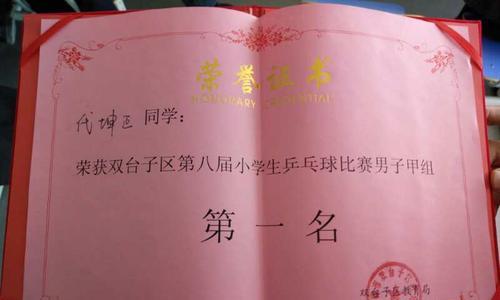 荣誉证书
HONORARY CREDENTIAL
代坤正 同学:
荣获双台子区第八届小学生乒乓球比赛男子甲组
第一名
双台子区教育局